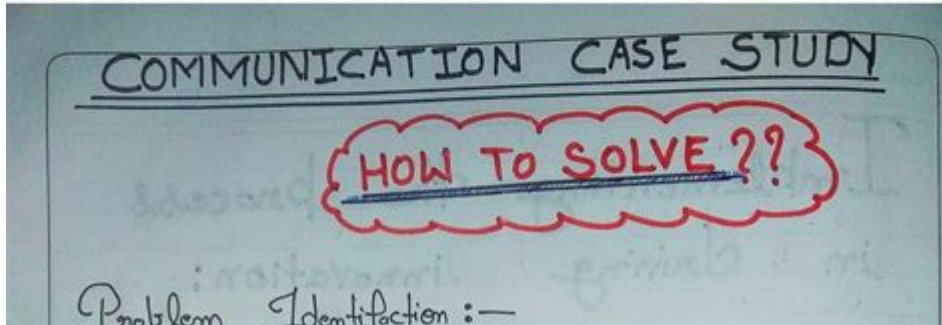 COMMUNICATION CASE STUDY
HOW TO SOLVE ??
Problem Identifaction :—